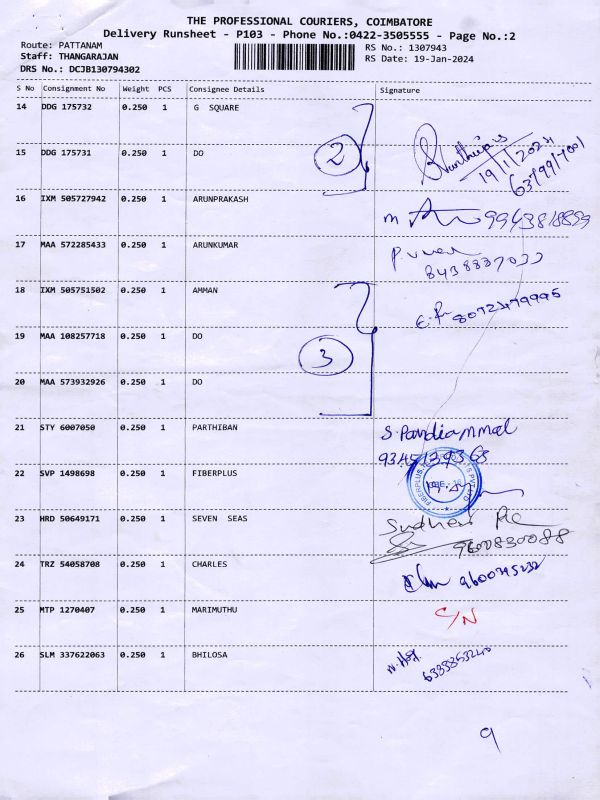 THE PROFESSIONAL COURIERS, COIMBATORE
Delivery Runsheet - P103 - Phone No.:0422-3505555 - Page No.:2
Route: PATTANAM
Staff: THANGARAJAN
DRS No.: DCJB130794302
RS No.: 1307943
RS Date: 19-Jan-2024
S No Consignment No Weight PCS Consignee Details Signature
14 DDG 175732 0.250 1 G SQUARE
2
15 DDG 175731 0.250 1 DO
19/1/2024
16 IXM 505727942 0.250 1 ARUNPRAKASH
17 MAA 572285433 0.250 1 ARUNKUMAR
18 IXM 505751502 0.250 1 AMMAN
19 MAA 108257718 0.250 1 DO
3
20 MAA 573932926 0.250 1 DO
21 STY 6007050 0.250 1 PARTHIBAN S. Pandiammal
22 SVP 1498698 0.250 1 FIBERPLUS
23 HRD 50649171 0.250 1 SEVEN SEAS
9600830088
24 TRZ 54058708 0.250 1 CHARLES
25 MTP 1270407 0.250 1 MARIMUTHU S/N
26 SLM 337622063 0.250 1 BHILOSA
9